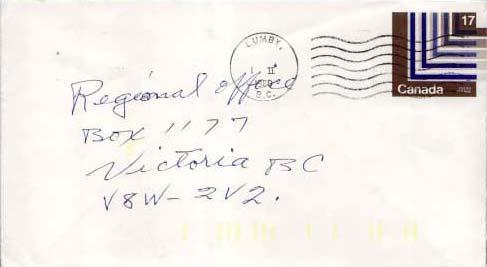 LUMBY,
I II
B.C.
17
Canada
Regional office
Box 1177
Victoria BC
V8W-2V2.